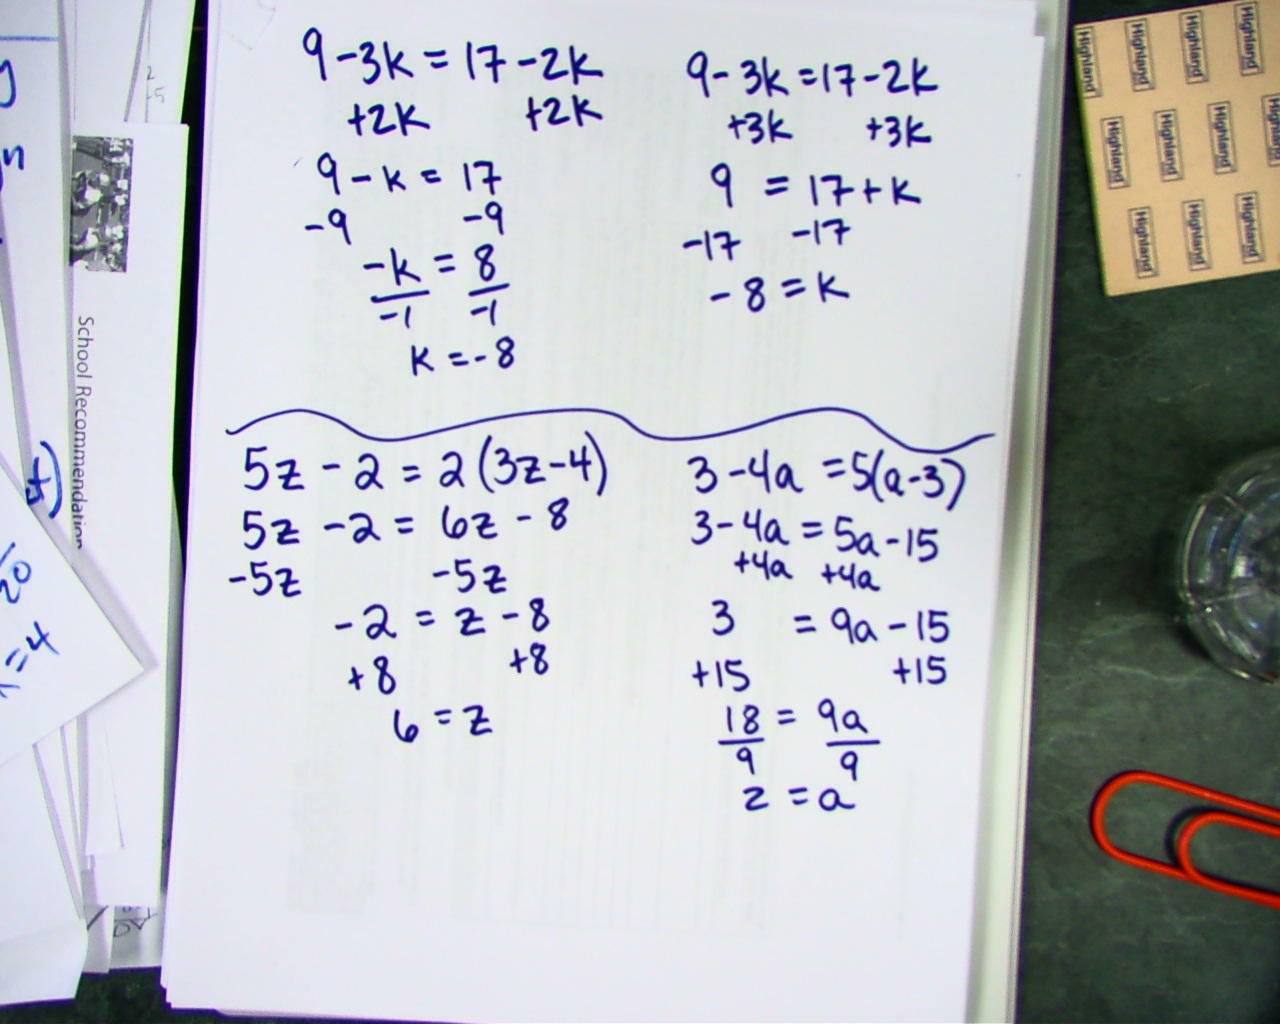 9-3k = 17-2k
+2k +2k
9-k = 17
-9 -9
-k = 8
-1 -1
k = -8
9-3k = 17-2k
+3k +3k
9 = 17+k
-17 -17
-8 = k
5z - 2 = 2(3z-4)
5z - 2 = 6z - 8
-5z -5z
-2 = z - 8
+8 +8
6 = z
3-4a = 5(a-3)
3-4a = 5a-15
+4a +4a
3 = 9a-15
+15 +15
18 = 9a
9 9
2 = a
School Recommendation
Highland
Highland
Highland
Highland
Highland
Highland
Highland
Highland
Highland
Highland
Highland
=4
20